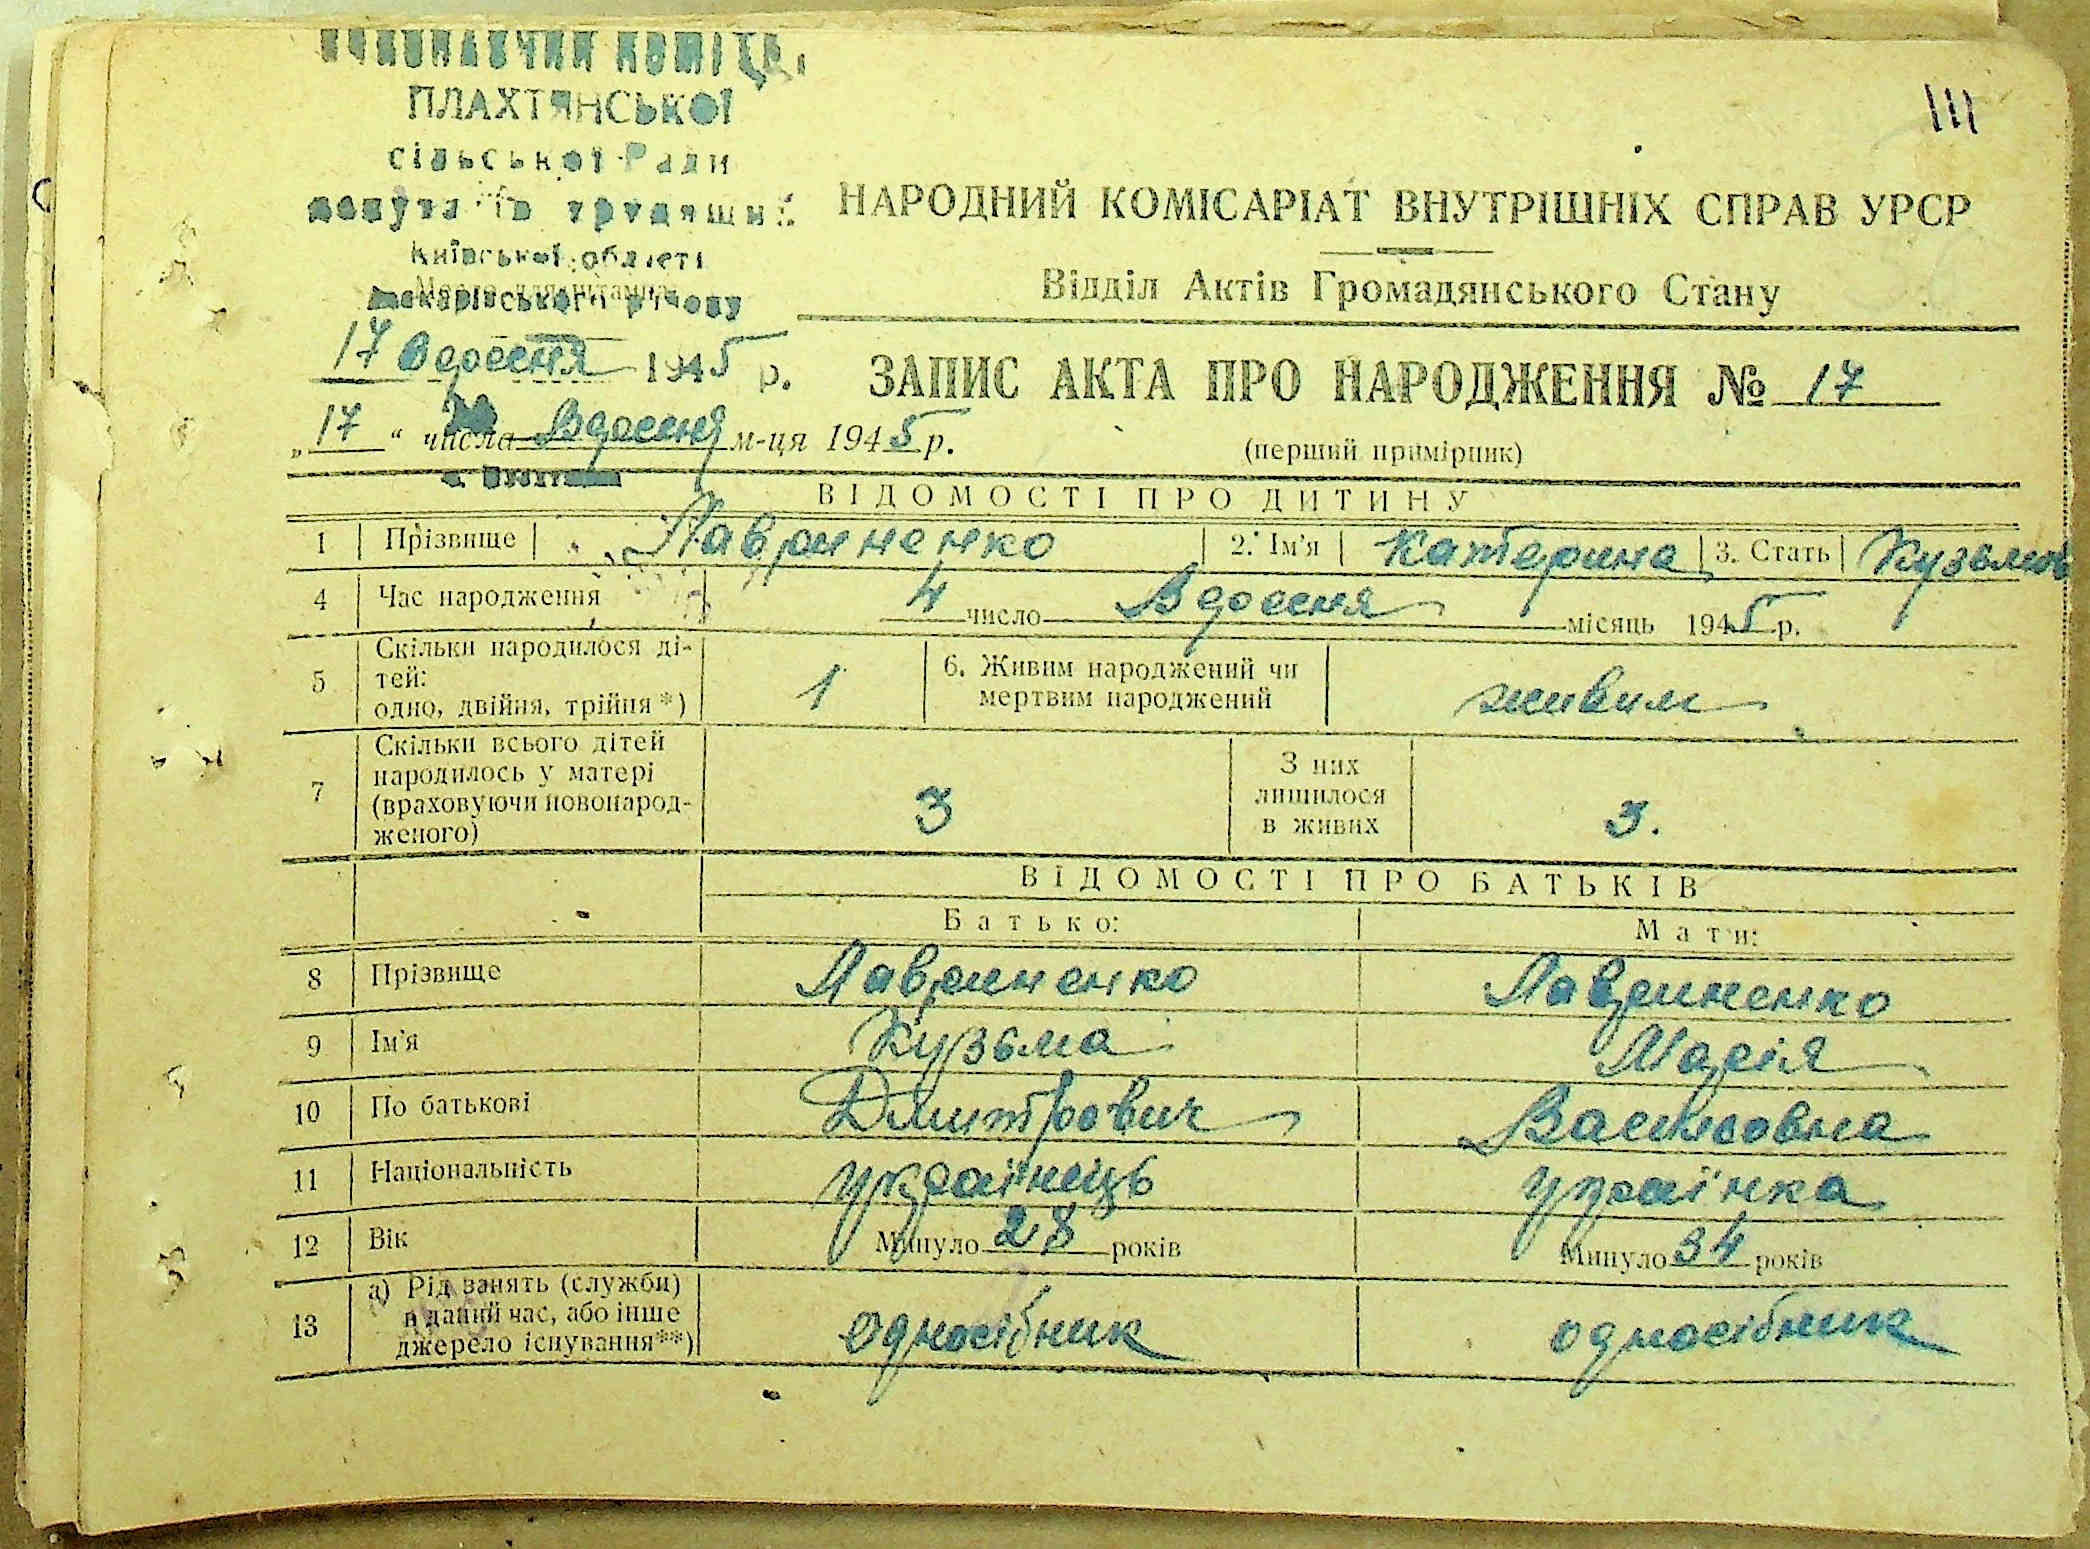 ВИКОНАВЧИЙ КОМІТЕТ
ПЛАХТЯНСЬКОЇ
сільської Ради
депутатів трудящих
Київської області
Макарівського району
17 Вересня 1945 р.
111
НАРОДНИЙ КОМІСАРІАТ ВНУТРІШНІХ СПРАВ УРСР
Відділ Актів Громадянського Стану
ЗАПИС АКТА ПРО НАРОДЖЕННЯ № 17
„17“ числа Вересня м-ця 1945 р.
(перший примірник)
ВІДОМОСТІ ПРО ДИТИНУ
1 Прізвище Лавриненко 2. Ім'я Катерина 3. Стать Кузьмов
4 Час народження 4 число Вересня місяць 1945 р.
5 Скільки народилося дітей: одно, двійня, трійня*) 1 6. Живим народжений чи мертвим народжений живим
7 Скільки всього дітей народилось у матері (враховуючи новонародженого) 3 З них лишилося в живих 3.
ВІДОМОСТІ ПРО БАТЬКІВ
Батько: Мати:
8 Прізвище Лавриненко Лавриненко
9 Ім'я Кузьма Марія
10 По батькові Дмитрович Василовна
11 Національність українець українка
12 Вік Минуло 28 років Минуло 34 років
13 а) Рід занять (служби) в даний час, або інше джерело існування**) односібник односібник